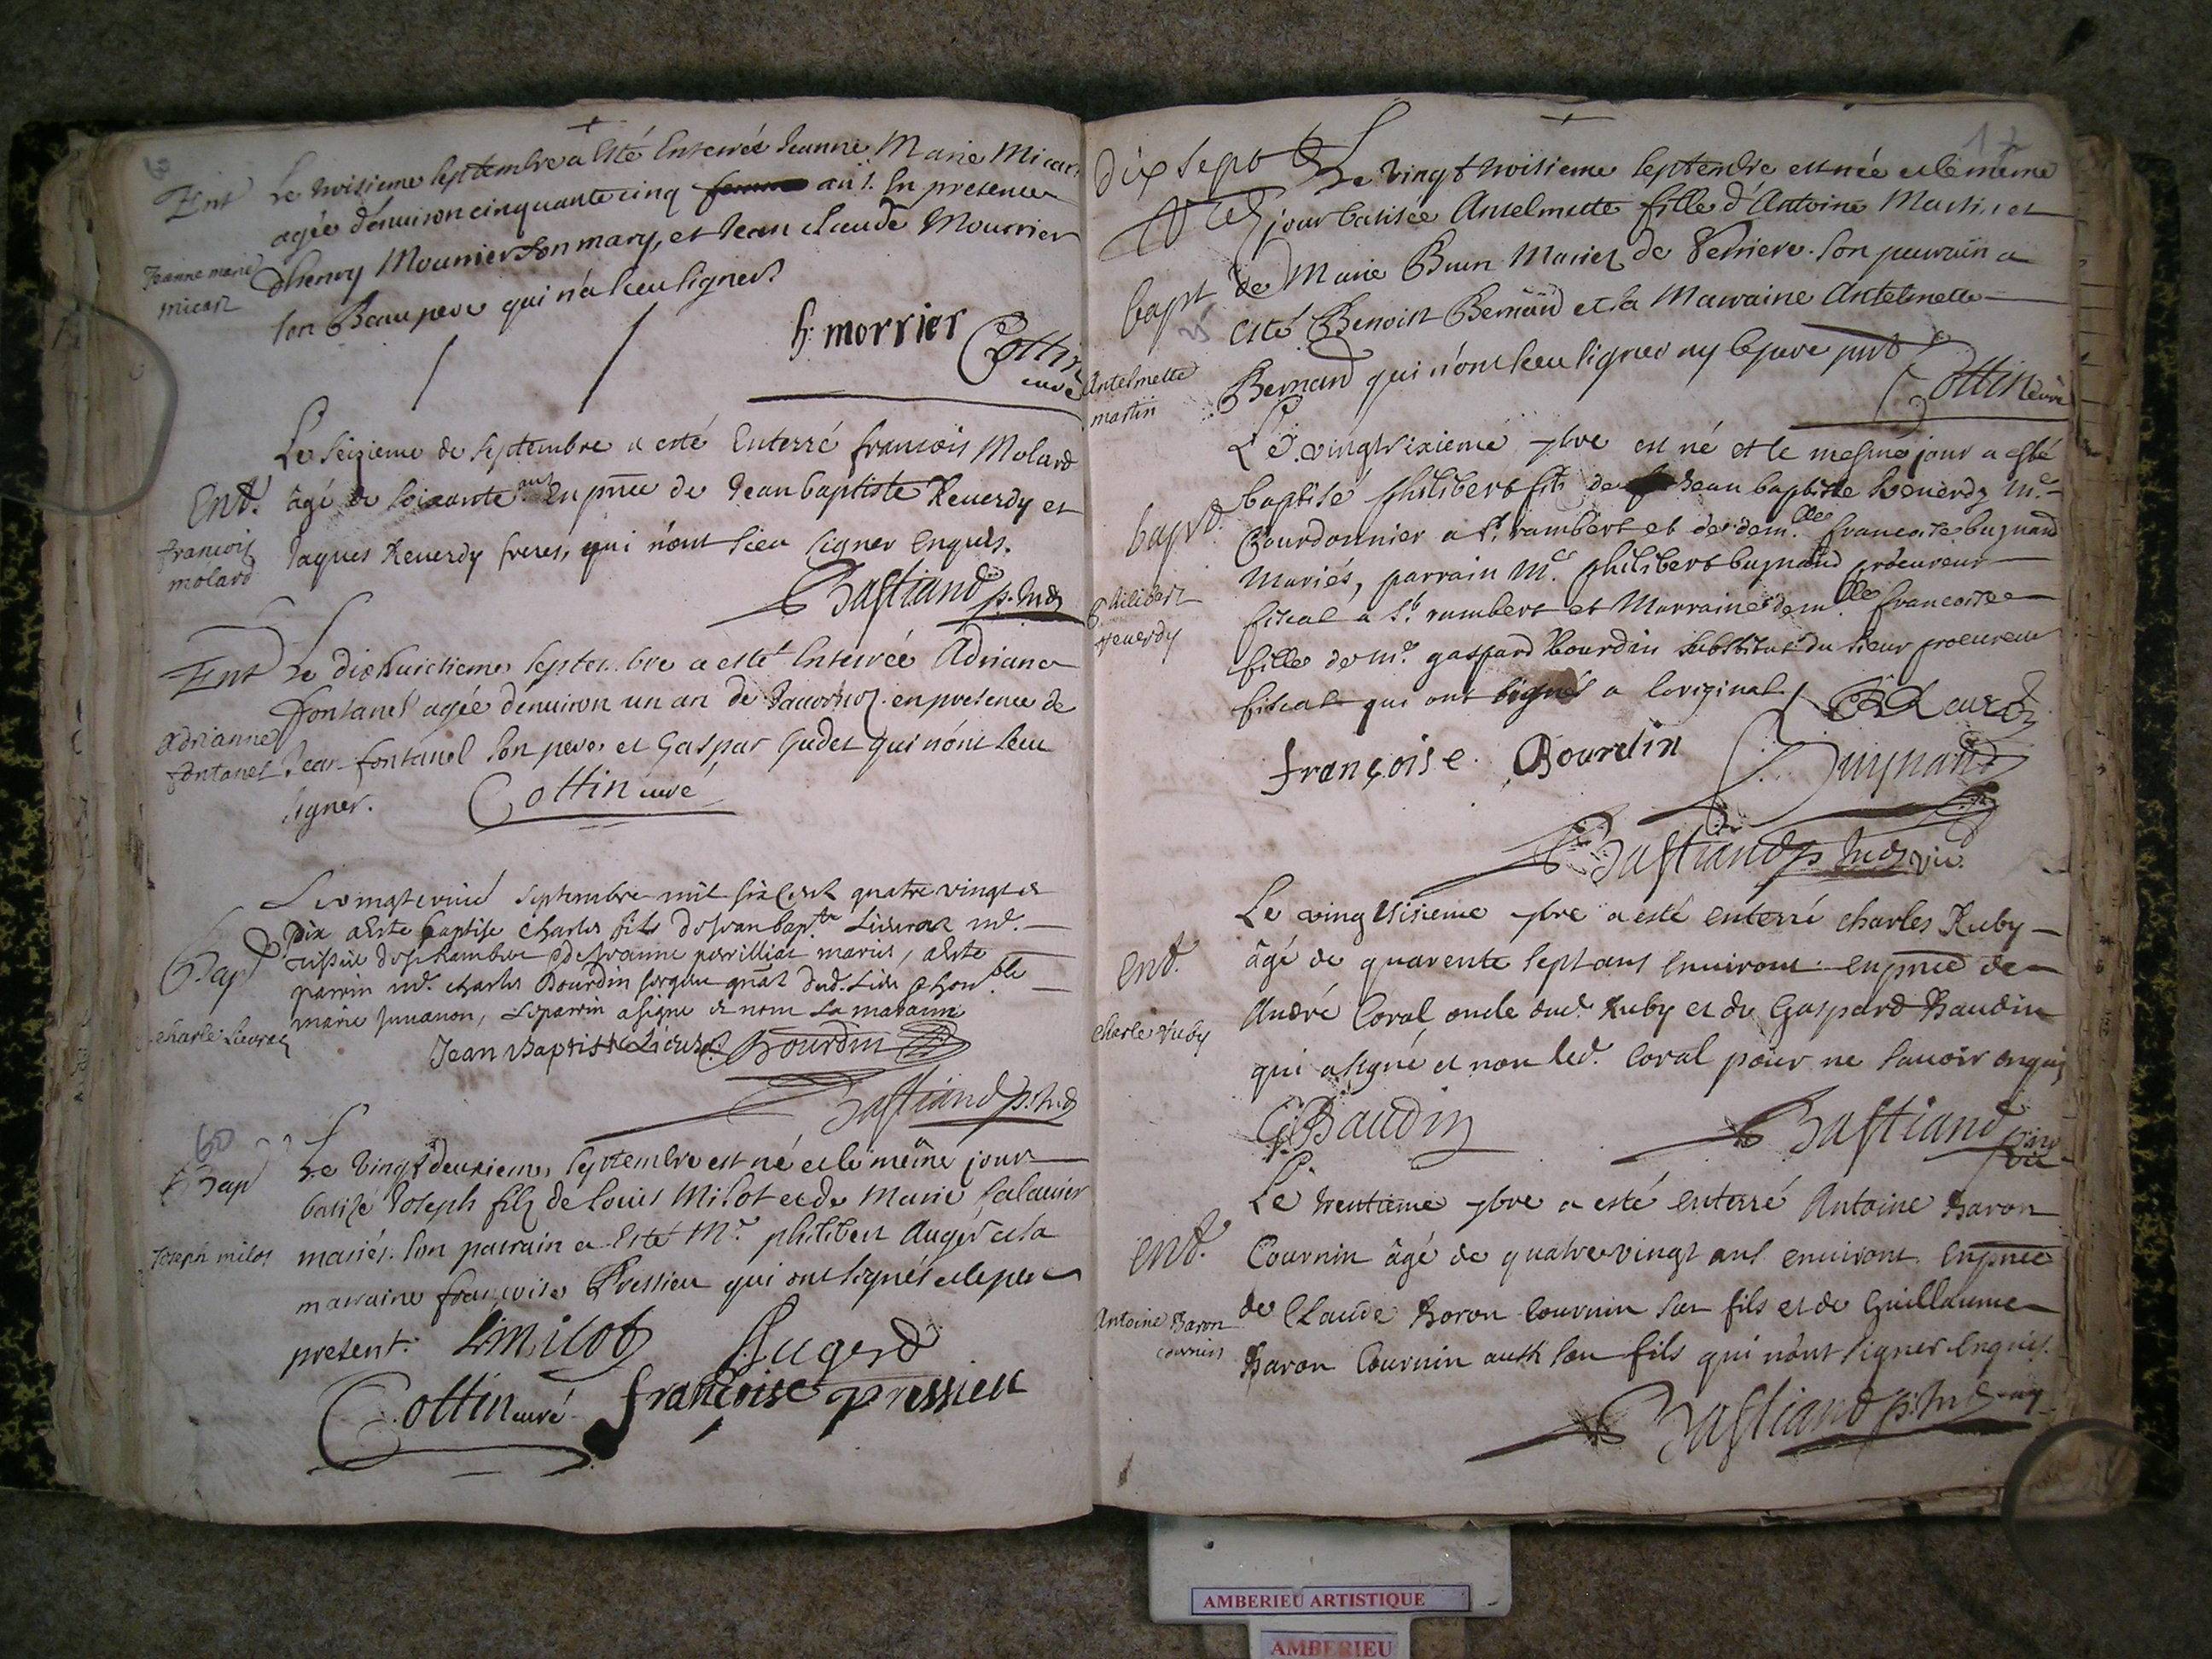 Ent
Jeanne marie
micar
Le troisieme septembre a esté Enterrée Jeanne Marie Micar
agée d'environ cinquante cinq ans. En presence
d'henry Mourrier son mary, et Jean claude Mourrier
son Beaupere qui n'a sceu signer
h. morrier
Cottin
curé
Ent.
francois
molard
Le seizieme de septembre a esté Enterré francois Molard
âgé de soixante ans en pnce de Jean baptiste Reuerdy et
Jaques Reuerdy freres, qui n'ont sceu signer enquis.
Bastiand p.
Ent
Adrianne
fontanel
Le dixhuictieme septembre a esté Enterrée Adriane
fontanel agée d'enuiron un an de en presence de
Jean fontanel son pere et Gaspar Gudet qui n'ont sceu
signer.
Cottin curé
Bap
charle Lieurat
Le septembre mil six cent quatre vingt et
Dix a este baptise Charles fils de Jean bapte
de st Rambert et de Jeanne mariés, a este
parrin mr. charles Bourdin
marie Juuanon, Le parrin a signe et non La maraine
Jean Baptiste Bourdin
Bastiand p.
60
Bap
Joseph milot
Le vingt deuxieme septembre est né et le même jour
batizé Joseph filz de Louis Milot et de Marie
mariés. son parrain a esté Mr. philibert Auger et la
marraine francoise Pressieu qui ont signés et le pere
present.
L milot
Augerd
Cottin curé
françoise pressieu
17
dix sept
bapt
Antelmette
martin
Le vingt troisieme septembre est née et le même
jour batisée Antelmette fille d'Antoine Martin et
de Marie Brun Mariez de Verriere. son parrain a
esté Benoist Bernard et la Marraine Antelmette
Bernard qui n'ont sceu signer ny le pere pnt
Cottin curé
bapt.
Philibert
reuerdy
Le vingtsixieme 7bre est né et le mesme jour a esté
baptisé philibert fils de Jean baptiste Reuerdy me.
Courdonnier a st. rambert et de demlle francoise bugnand
Mariés, parrain Me. philibert bugnand procureur
fiscal a st. rambert et Marraine demlle francoise
fille de me. gaspard Bourdin substitut du sieur procureur
fiscal qui ont signés a l'original
françoise Bourdin
Buynand
Bastiand p. vic.
ent.
charle ruby
Le vingtsixieme 7bre a esté enterré charles Ruby
âgé de quarente sept ans enuiront en pnce de
André Coral oncle dud. Ruby et de Gaspard Baudin
qui a signé et non led. Coral pour ne sauoir enquis
G Baudin
Bastiand
vic
ent.
Antoine Baron
cournin
Le trentieme 7bre a esté enterré Antoine Baron
Cournin âgé de quatrevingt ans enuiront en pnce
de Claude Baron Cournin son fils et de Guillaume
Baron Cournin aussi son fils qui n'ont signer enquis.
Bastiand p.
AMBERIEU ARTISTIQUE
AMBERIEU